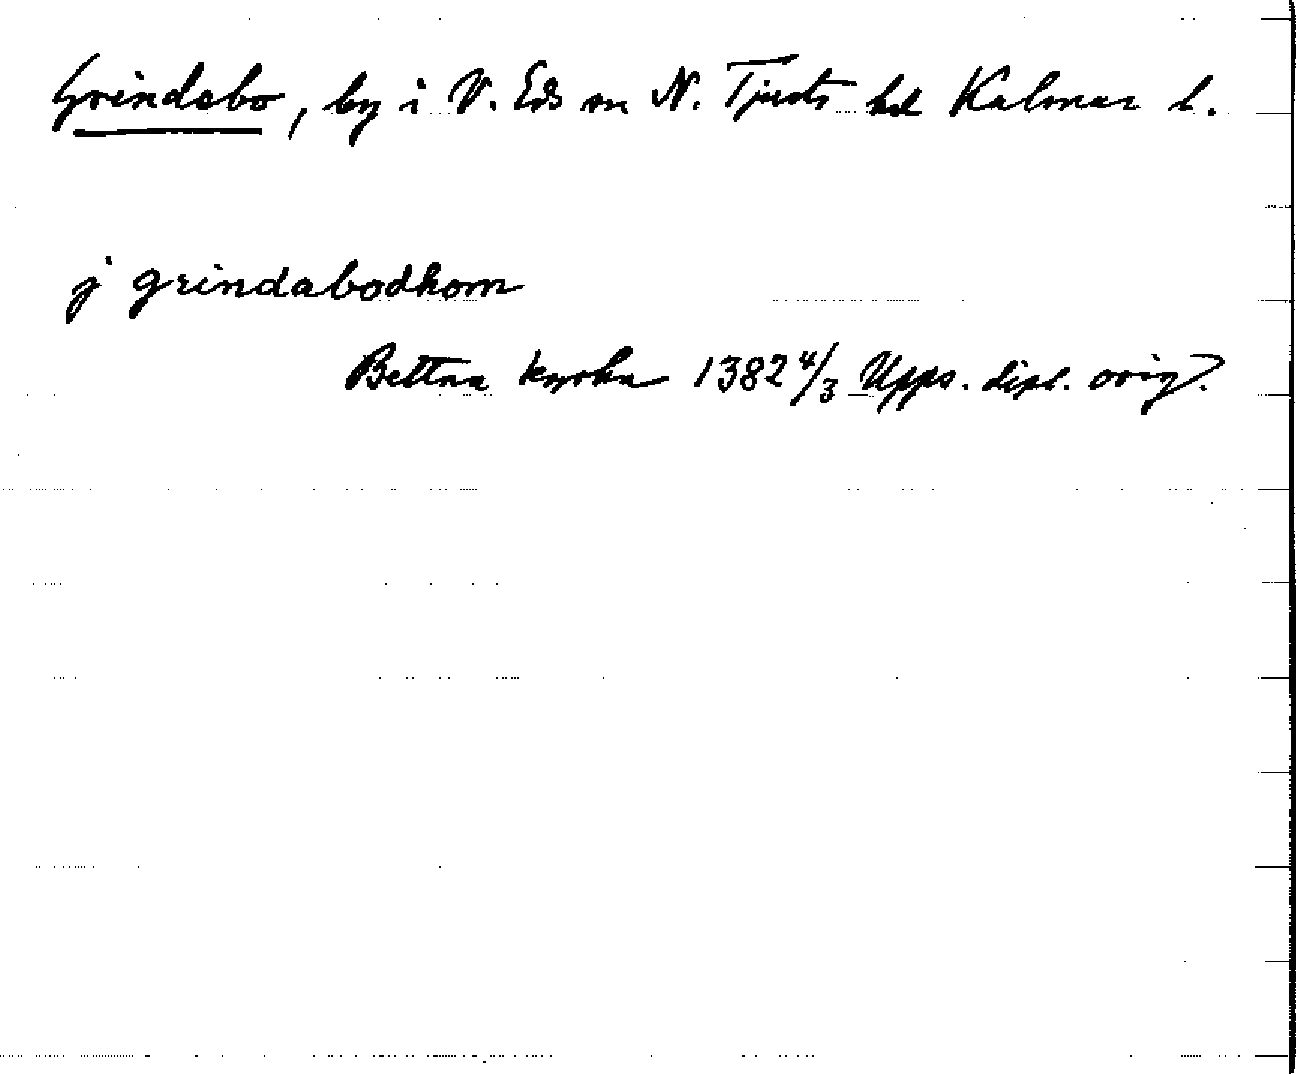 Grindebo, by i V. Eds sn N. Tjusts hd Kalmar l.
j grindabodhom
Bettna kyrka 1382 4/3 Upps. dipl. orig.